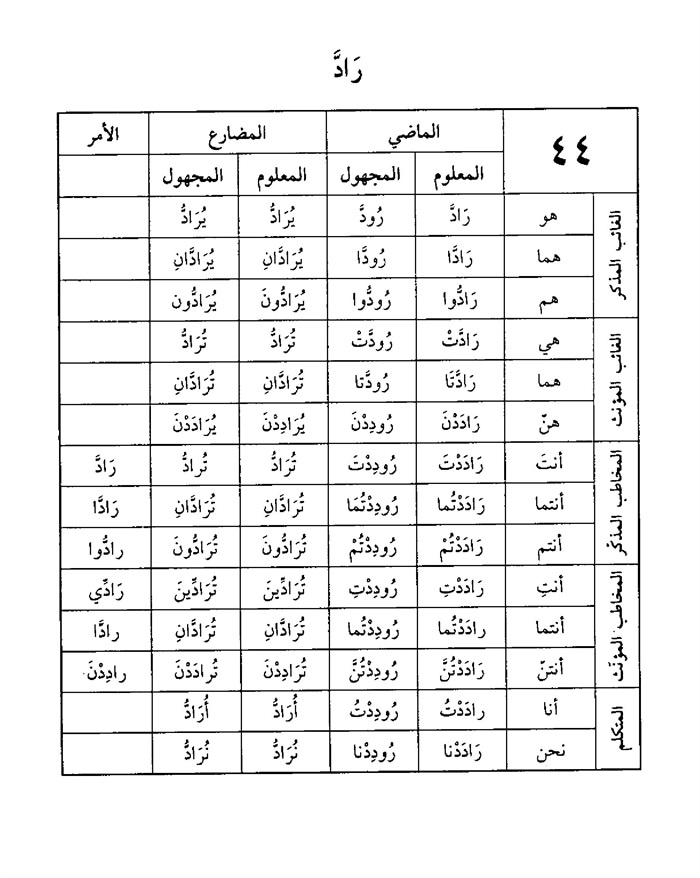 رَادَّ
٤٤ الماضي المضارع الأمر
المعلوم المجهول المعلوم المجهول
الغائب المذكر
هو رَادَّ رُودَّ يُرَادُّ يُرَادُّ
هما رَادَّا رُودَّا يُرَادَّانِ يُرَادَّانِ
هم رَادُّوا رُودُّوا يُرَادُّونَ يُرَادُّون
الغائب المؤنث
هي رَادَّتْ رُودَّتْ تُرَادُّ تُرَادُّ
هما رَادَّتَا رُودَّتا تُرَادَّانِ تُرَادَّانِ
هنّ رَادَدْنَ رُودِدْنَ يُرَادِدْنَ يُرَادَدْنَ
المخاطب المذكر
أنتَ رَادَدْتَ رُودِدْتَ تُرَادُّ تُرادُّ رَادَّ
أنتما رَادَدْتُما رُودِدْتُمَا تُرَادَّانِ تُرَادَّانِ رَادَّا
أنتم رَادَدْتُمْ رُودِدْتُمْ تُرَادُّونَ تُرَادُّونَ رادُّوا
المخاطب المؤنث
أنتِ رَادَدْتِ رُودِدْتِ تُرَادِّينَ تُرَادِّينَ رَادِّي
أنتما رادَدْتُما رُودِدْتُما تُرَادَّانِ تُرَادَّانِ رادَّا
أنتنّ رَادَدْتُنَّ رُودِدْتُنَّ تُرَادِدْنَ تُرادَدْنَ رادِدْنَ
المتكلم
أنا رادَدْتُ رُودِدْتُ أُرَادُّ أُرَادُّ
نحن رَادَدْنا رُودِدْنا نُرَادُّ نُرَادُّ